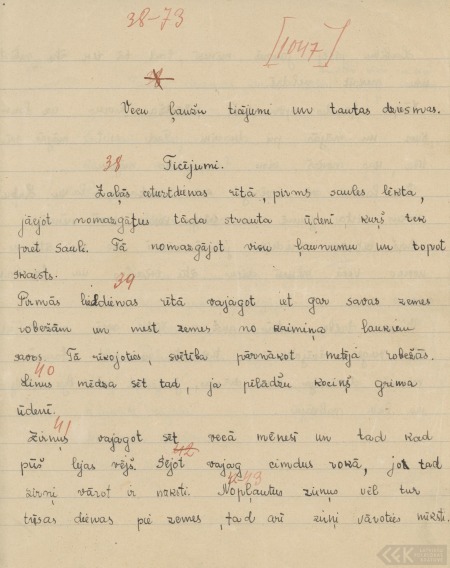 38-73
[1047]
38
Vecu ļaužu ticējumi un tautas dziesmas.
38 Ticējumi.
Zaļās ceturtdienas rītā, pirms saules lēkta,
jāejot nomazgāties tāda strauta ūdenī kurš tek
pret sauli. Tā nomazgājot visu ļaunumu un topot
skaists.
39
Pirmās lieldienas rītā vajagot iet gar savas zemes
robežām un mest zemes no kaimiņa laukiem
savos. Tā rīkojoties, svētība pārnākot metēja robežās.
40
Linus mēdza sēt tad, ja pīlādžu kociņš grima
ūdenī.
41
Zirņus vajagot sēt vecā mēnesī un tad kad
42
pūš lijas vējš. Sējot vajag cimdus rokā, jo tad
43
zirņi vārot ir mīksti. Nopļautus zirņus vēl tur
trejas dienas pie zemes, tad arī zirņi vāroties mīksti.